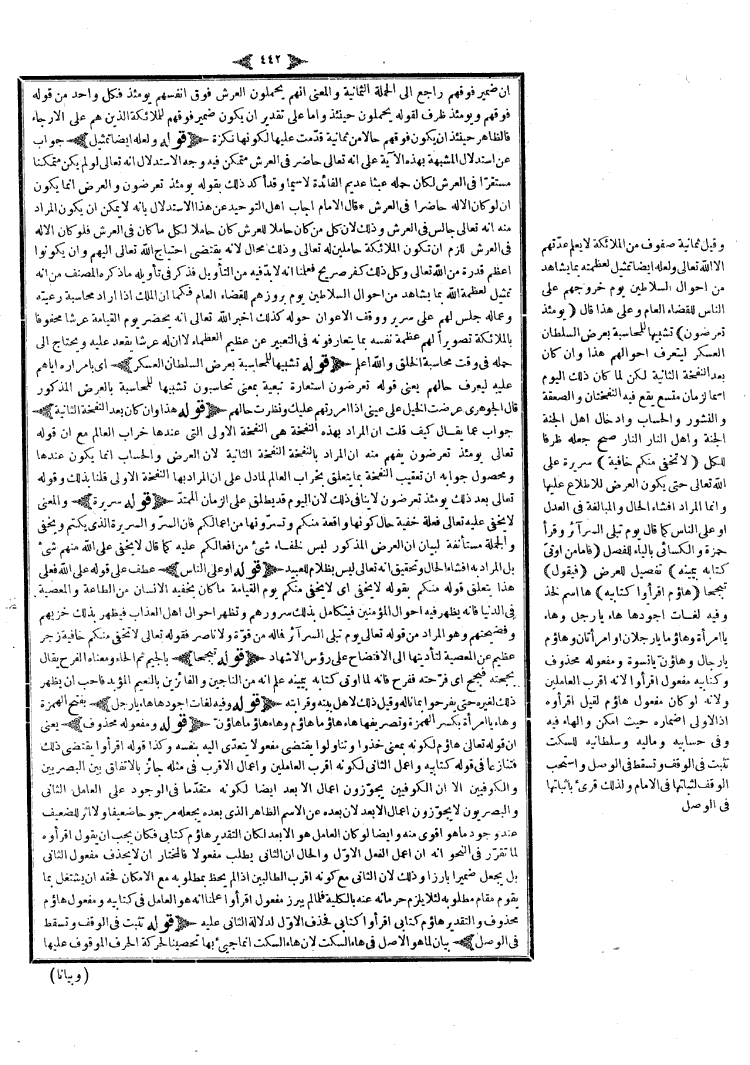 ٤٤٢
ان ضمير فوقهم راجع الى الحملة الثمانية والمعنى انهم يحملون العرش فوق انفسهم يومئذ فكل واحد من قوله
فوقهم ويومئذ ظرف لقوله يحملون حينئذ واما على تقدير ان يكون ضمير فوقهم للملائكة الذين هم على الارجاء
فالظاهر حينئذ ان يكون فوقهم حالا من ثمانية قدّمت عليها لكونها نكرة ﴿ قوله ولعله ايضا تمثيل ﴾ جواب
عن استدلال المشبهة بهذه الآية على انه تعالى حاضر فى العرش متمكن فيه وجه الاستدلال انه تعالى لو لم يكن متمكنا
مستقرّا فى العرش لكان حمله عبثا عديم الفائدة لاسيما وقد أكد ذلك بقوله يومئذ تعرضون والعرض انما يكون
ان لو كان الاله حاضرا فى العرش * قال الامام اجاب اهل التوحيد عن هذا الاستدلال بانه لا يمكن ان يكون المراد
منه انه تعالى جالس فى العرش وذلك لان كل من كان حاملا للعرش كان حاملا لكل ما كان فى العرش فلو كان الاله
فى العرش للزم ان تكون الملائكة حاملين له تعالى وذلك محال لانه يقتضى احتياج الله تعالى اليهم وان يكونوا
اعظم قدرة من الله تعالى وكل ذلك كفر صريح فعلمنا انه لابدّ فيه من التأويل فذكر فى تأويله ما ذكره المصنف من انه
تمثيل لعظمة الله بما يشاهد من احوال السلاطين يوم بروزهم للقضاء العام فكما ان الملك اذا اراد محاسبة رعيته
وعماله جلس لهم على سرير ووقف الاعوان حوله كذلك اخبر الله تعالى انه يحضر يوم القيامة عرشا محفوفا
بالملائكة تصويرا لهم عظمة نفسه بما يتعارفونه فى التعبير عن عظيم العظماء لا ان له عرشا يقعد عليه ويحتاج الى
حمله فى وقت محاسبة الخلق والله اعلم ﴿ قوله تشبيها للمحاسبة بعرض السلطان العسكر ﴾ اى بامراره اياهم
عليه ليعرف حالهم يعنى قوله تعرضون استعارة تبعية بمعنى تحاسبون تشبيها للمحاسبة بالعرض المذكور
قال الجوهرى عرضت الخيل على عينى اذا امررتهم عليك ونظرت حالهم ﴿ قوله هذا وان كان بعد النفخة الثانية ﴾
جواب عما يقال كيف قلت ان المراد بهذه النفخة هى النفخة الاولى التى عندها خراب العالم مع ان قوله
تعالى يومئذ تعرضون يفهم منه ان المراد بالنفخة النفخة الثانية لان العرض والحساب انما يكون عندها
ومحصول جوابه ان تعقيب النفخة بما يتعلق بخراب العالم لما دل على ان المراد بها النفخة الاولى قلنا بذلك وقوله
تعالى بعد ذلك يومئذ تعرضون لا ينافى ذلك لان اليوم قد يطلق على الزمان الممتدّ ﴿ قوله سريرة ﴾ والمعنى
لا يخفى عليه تعالى فعلة خفية حال كونها واقعة منكم وتسرّونها من اعمالكم فان السرّ والسريرة الذى يكتم ويخفى
والجملة مستأنفة لبيان ان العرض المذكور ليس لخفاء شئ من افعالكم عليه كما قال لا يخفى على الله منهم شئ
بل المراد به افشاء الحال وتحقيق انه تعالى ليس بظلام للعبيد ﴿ قوله او على الناس ﴾ عطف على قوله على الله فعلى
هذا يتعلق قوله منكم بقوله لا يخفى اى لا يخفى منكم يوم القيامة ما كان يخفيه الانسان من الطاعة والمعصية
فى الدنيا فانه يظهر فيه احوال المؤمنين فيتكامل بذلك سرورهم وتظهر احوال اهل العذاب فيظهر بذلك خزيهم
وفضيحتهم وهو المراد من قوله تعالى يوم تبلى السرآئر فما له من قوّة ولا ناصر فقوله تعالى لا تخفى منكم خافية زجر
عظيم عن المعصية لتأديتها الى الافتضاح على رؤس الاشهاد ﴿ قوله تبجحا ﴾ بالجيم ثم الحاء ومعناه الفرح يقال
بجحته فبجح اى فرّحته ففرح فانه لما اوتى كتابه بيمينه علم انه من الناجين والفائزين بالنعيم المؤبد فاحب ان يظهر
ذلك لغيره حتى يفرحوا بما ناله وقيل ذلك لاهل بيته وقرابته ﴿ قوله وفيه لغات اجودها هاء يارجل ﴾ بفتح الهمزة
وهاء يا امرأة بكسر الهمزة وتصريفها هاء هاؤما هاؤم وهاء هاؤما هاؤنّ ﴿ قوله ومفعوله محذوف ﴾ يعنى
ان قوله تعالى هاؤم لكونه بمعنى خذوا وتناولوا يقتضى مفعولا يتعدّى اليه بنفسه وكذا قوله اقرأوا يقتضى ذلك
فتنازعا فى قوله كتابيه واعمل الثانى لكونه اقرب العاملين واعمال الاقرب فى مثله جائز بالاتفاق بين البصريين
والكوفيين الا ان الكوفيين يجوّزون اعمال الابعد ايضا لكونه متقدما فى الوجود على العامل الثانى
والبصريون لا يجوّزون اعمال الابعد لان بعده عن الاسم الظاهر الذى بعده يجعله مرجوحا ضعيفا ولا اثر للضعيف
عند وجود ما هو اقوى منه وايضا لو كان العامل هو الابعد لكان التقدير هاؤم كتابى فكان يجب ان يقول اقرأوه
لما تقرّر فى النحو انه ان اعمل الفعل الاوّل والحال ان الثانى يطلب مفعولا فالمختار ان لا يحذف مفعول الثانى
بل يجعل ضميرا بارزا وذلك لان الثانى مع كونه اقرب الطالبين اذا لم يحظ بمطلوبه مع الامكان فحقه ان يشتغل بما
يقوم مقام مطلوبه لئلا يلزم حرمانه عنه بالكلية فلما لم يبرز مفعول اقرأوا علمنا انه هو العامل فى كتابيه ومفعول هاؤم
محذوف والتقدير هاؤم كتابى اقرأوا كتابى فحذف الاوّل لدلالة الثانى عليه ﴿ قوله تثبت فى الوقف وتسقط
فى الوصل ﴾ بيان لما هو الاصل فى هاء السكت لان هاء السكت انما جيئ بها تحصينا لحركة الحرف الموقوف عليها
(وبيانا)
وقيل ثمانية صفوف من الملائكة لا يعلم عدّتهم
الا الله تعالى ولعله ايضا تمثيل لعظمته بما يشاهد
من احوال السلاطين يوم خروجهم على
الناس للقضاء العام وعلى هذا قال (يومئذ
تعرضون) تشبيها للمحاسبة بعرض السلطان
العسكر ليتعرف احوالهم هذا وان كان
بعد النفخة الثانية لكن لما كان ذلك اليوم
اسما لزمان متسع يقع فيه النفختان والصعقة
والنشور والحساب وادخال اهل الجنة
الجنة واهل النار النار صح جعله ظرفا
للكل (لا تخفى منكم خافية) سريرة على
الله تعالى حتى يكون العرض للاطلاع عليها
وانما المراد افشاء الحال والمبالغة فى العدل
او على الناس كما قال يوم تبلى السرآئر وقرأ
حمزة والكسائى بالياء للفصل (فاما من اوتى
كتابه بيمينه) تفصيل للعرض (فيقول)
تبجحا (هاؤم اقرأوا كتابيه) ها اسم لخذ
وفيه لغات اجودها هاء يارجل وهاء
يا امرأة وهاؤما يارجلان او امرأتان وهاؤم
يارجال وهاؤنّ يا نسوة ومفعوله محذوف
وكتابيه مفعول اقرأوا لانه اقرب العاملين
ولانه لو كان مفعول هاؤم لقيل اقرأوه
اذ الاولى اضماره حيث امكن والهاء فيه
وفى حسابيه وماليه وسلطانيه للسكت
تثبت فى الوقف وتسقط فى الوصل واستحب
الوقف لثباتها فى الامام ولذلك قرئ باثباتها
فى الوصل